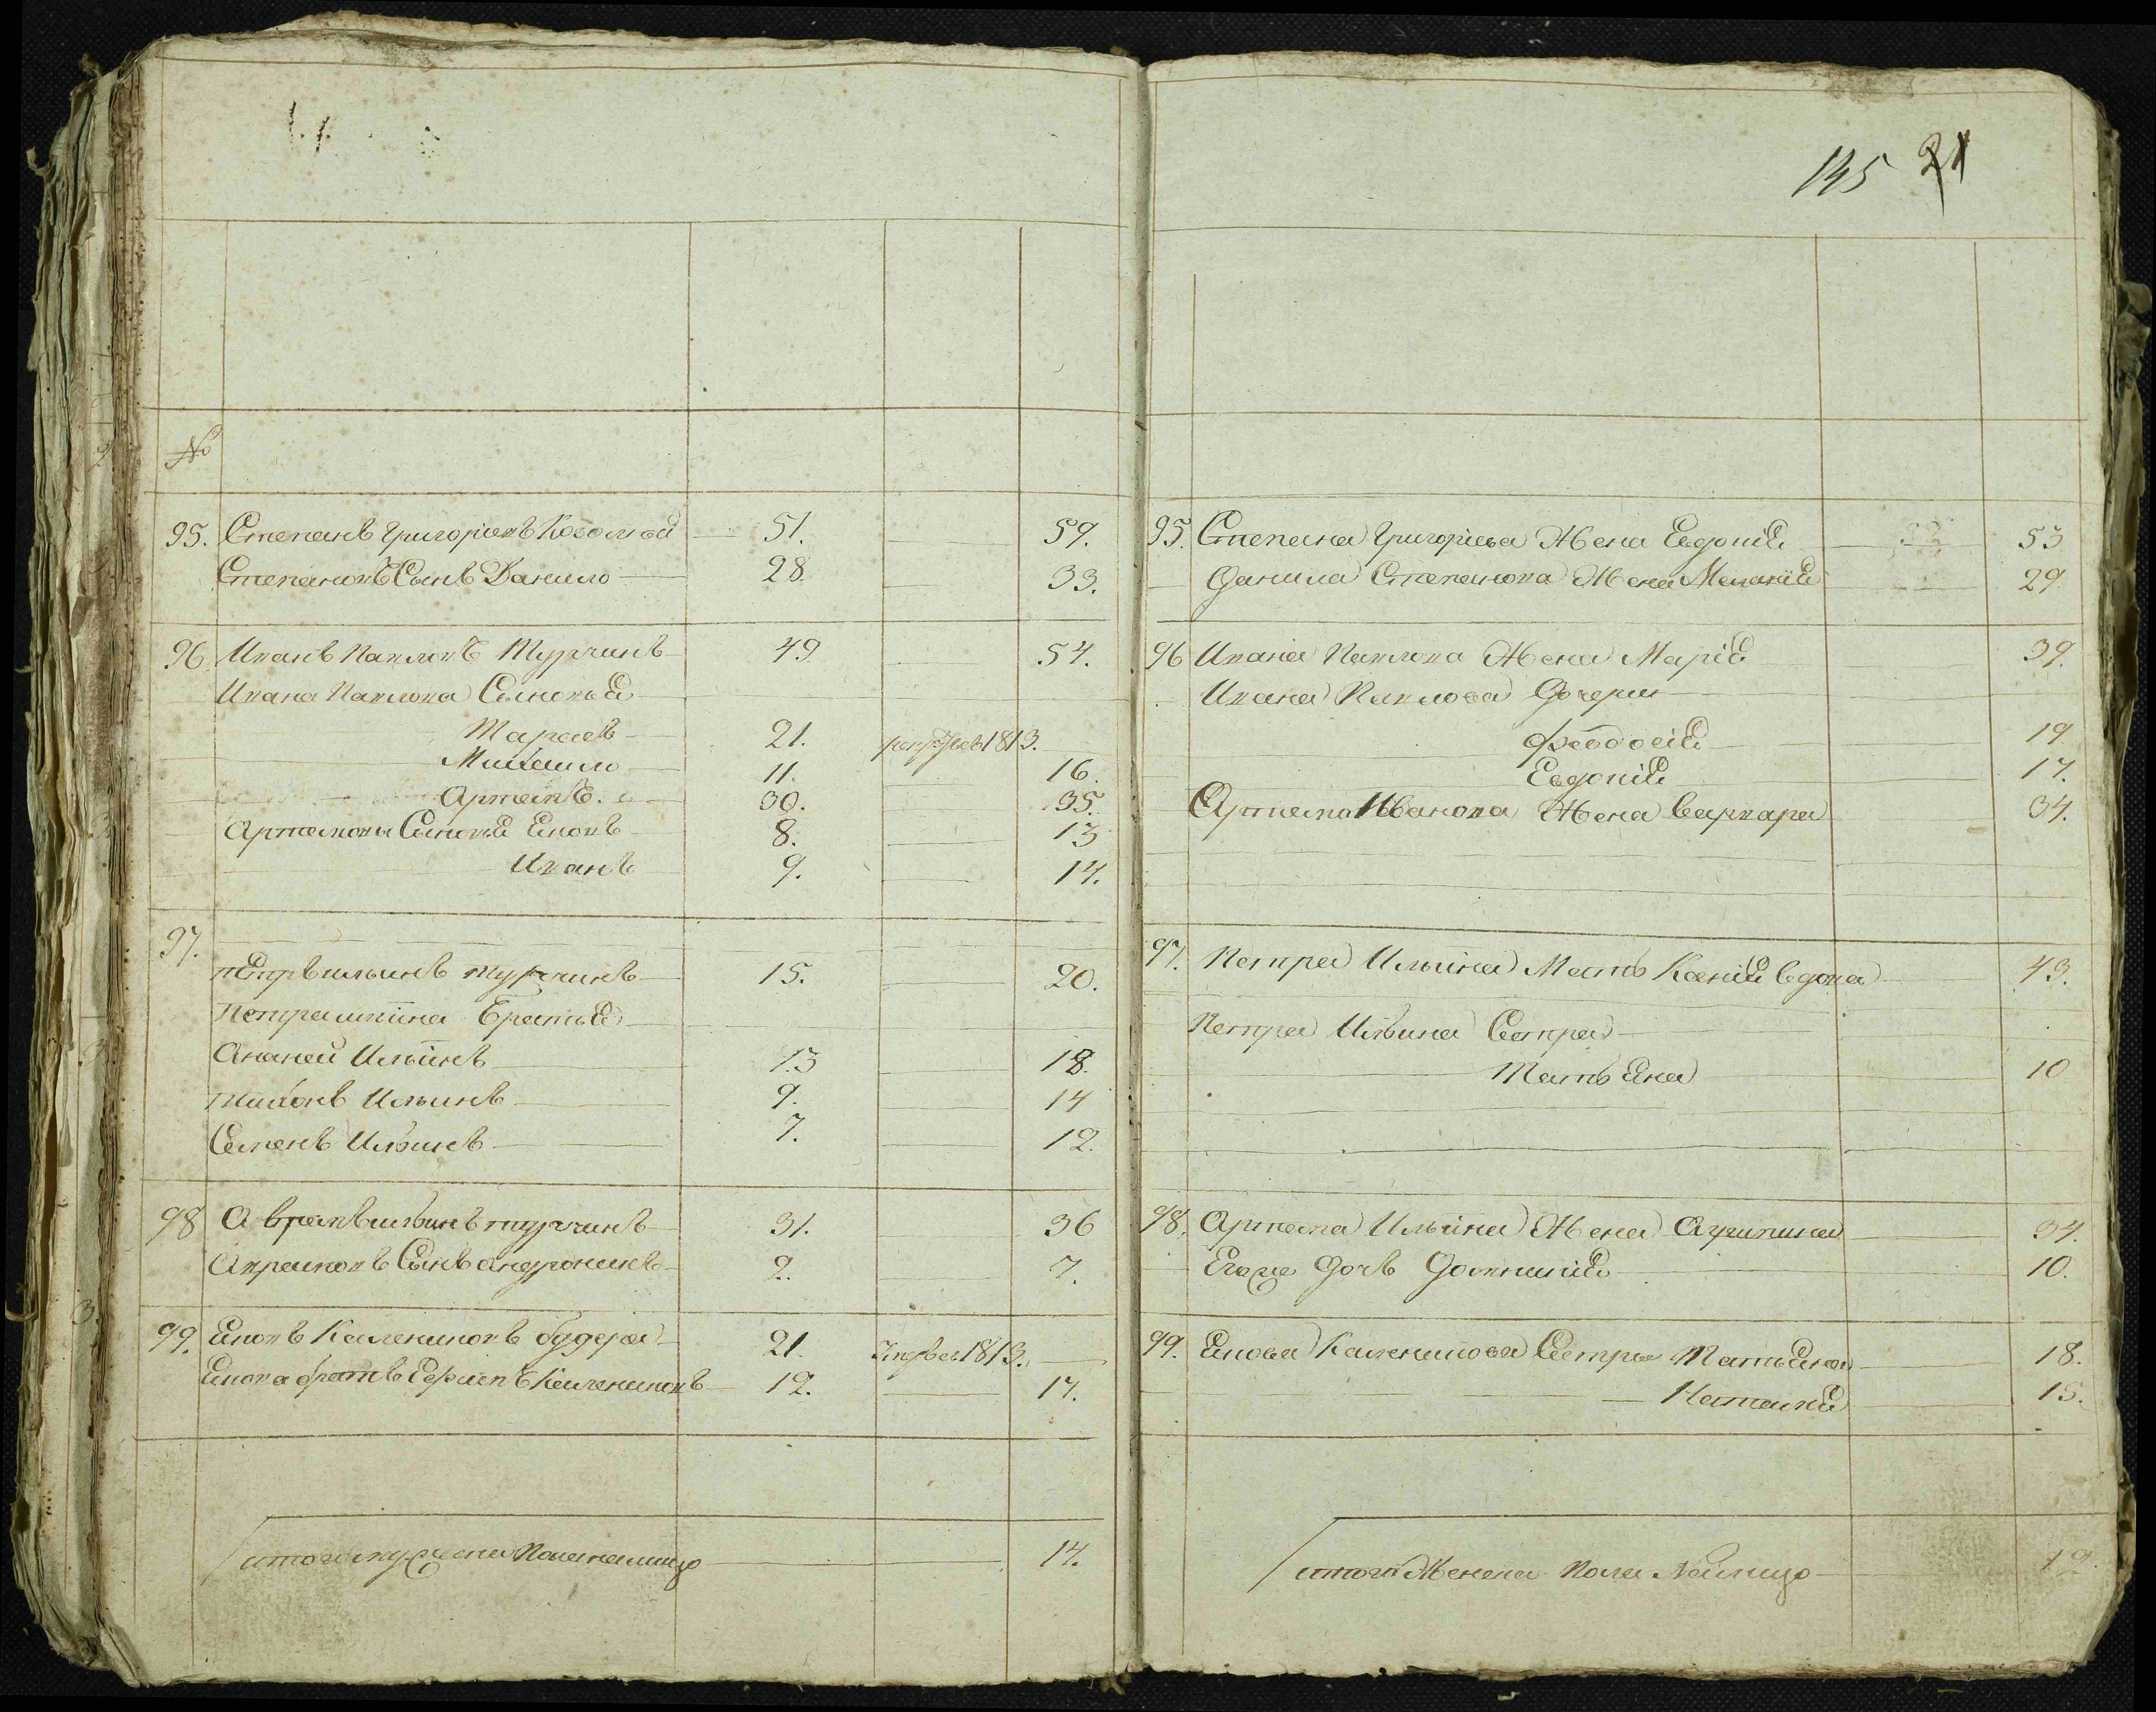 145 21
№
95. Степанъ Григорьевъ Кобо 51. 59.
Степановъ Сынъ Данило 28 33.
96. Иванъ Павловъ Турчинъ 49 54.
Ивана Павлова Сыновья
Тарасъ 21. 1813.
Михайло 11. 16.
Артемъ. 30. 35.
Артемовы Сыновья Яковъ 8. 13
Иванъ 9. 14.
97.
петръ ильинъ турчинъ 15. 20.
Петра ильина Братья
Ананей Ильинъ 13 18.
тихонъ Ильинъ 9. 14
Семенъ Ильинъ 7. 12.
98 Аврамъ ильинъ турчинъ 31. 36
Аврамовъ Сынъ андронникъ 2. 7.
99. Яковъ Калениковъ будера 21. 1813.
Якова братъ Ефимъ Калениковъ 12. 17.
итого мужска Пола налицо 14.
95. Степана Григорьева Жена Евдокия 53
Данила Степанова Жена Мелания 29
96 Ивана Павлова Жена Мария 39.
Ивана Павлова Дочери
Феодосия 19
Евдокия 17.
Артема Иванова Жена Варвара 34.
97. Петра Ильина Мать Ксения вдова 43.
Петра Ильина Сестра
Татьяна 10
98. Артема Ильина Жена Агрипина 34.
Егоже Дочь Домникия 10.
99. Якова Каленикова Сестры Татьяна 18.
Наталия 15.
итого Женска Пола Налицо 12.